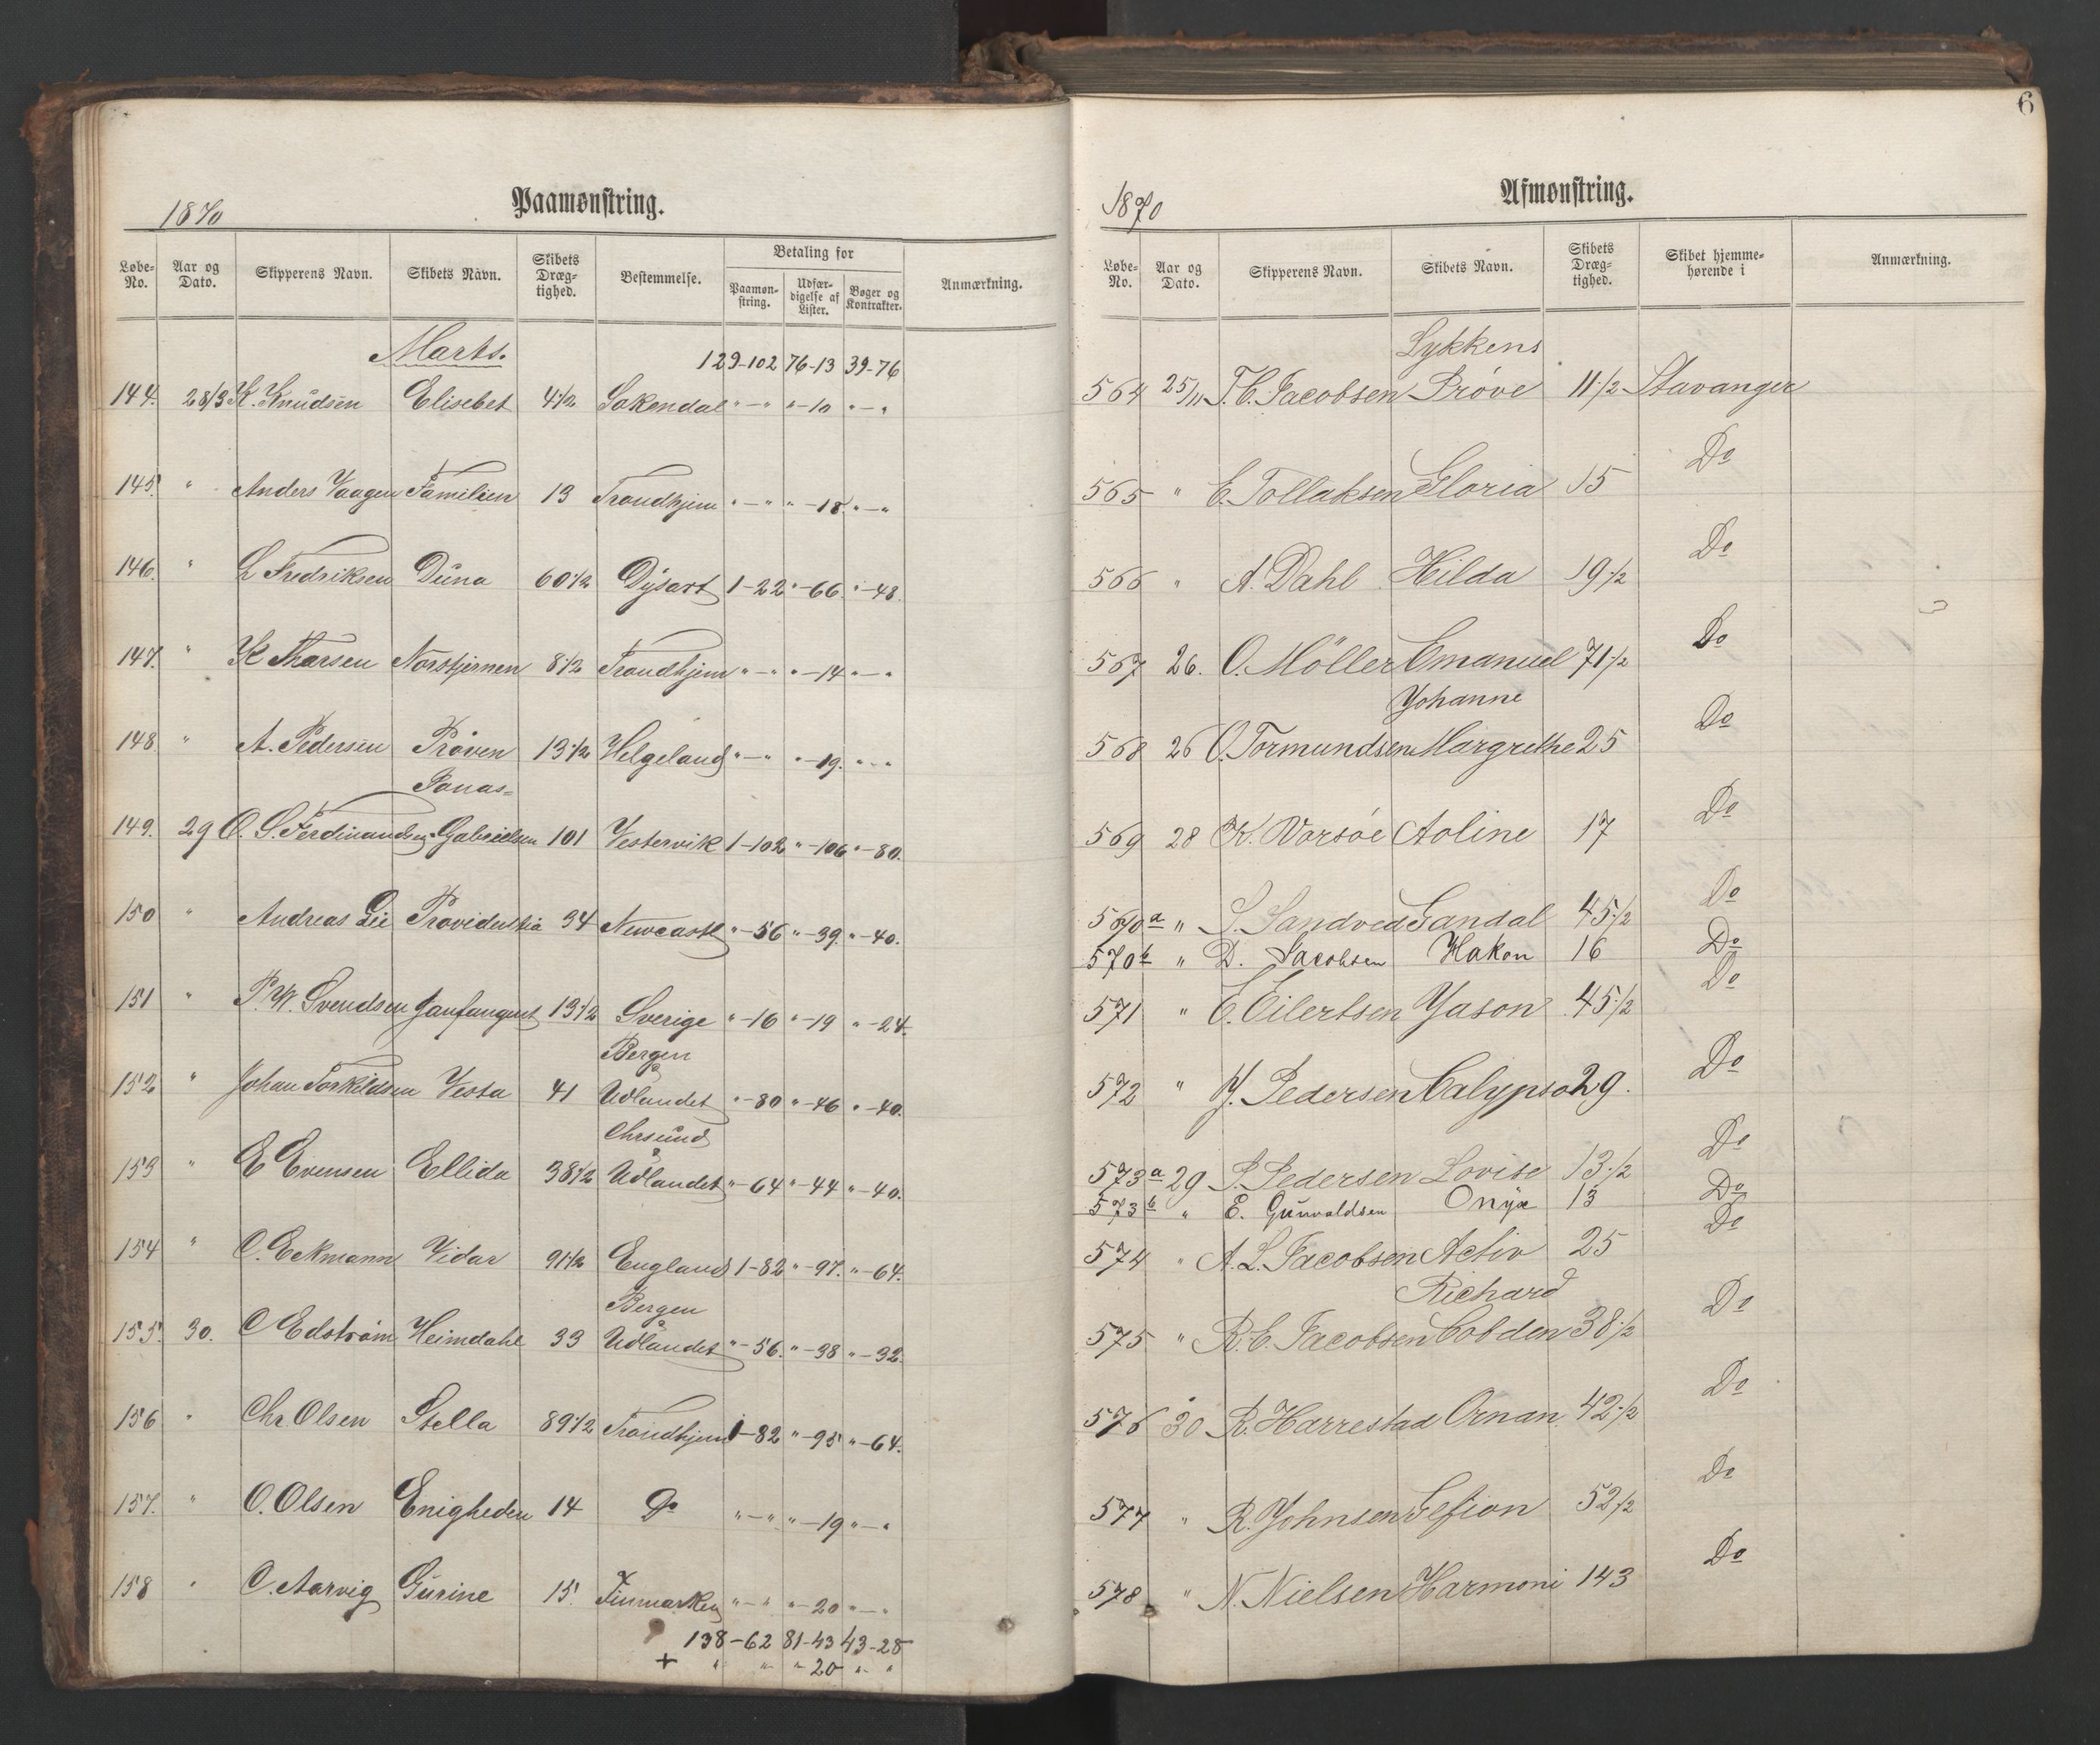 Paamønstring.
1870
Løbe-No. Aar og Dato. Skipperens Navn. Skibets Navn. Skibets Dræg-tighed. Bestemmelse. Betaling for Paamøn-string. Udfær-digelse af Lister. Bøger og Kontrakter. Anmærkning.
Marts. 129-102 76-13 39-76
144. 28/3 K. Knudsen Elisebet 4 1/2 Sokendal " - " " - 10 " - "
145. " Anders Vaagen Familien 13 Trondhjem " - " " - 18. " - "
146. " L Fredriksen Duna 60 1/2 Dysart 1-22 " - 66. " - 48.
147. " K Thorsen Norstjernen 8 1/2 Trondhjem " - " " - 14 " - "
148. " A. Pedersen Prøven 13 1/2 Helgeland " - " " - 19. " - "
Jonas=
149. 29 O. S. Ferdinandsen Gabrielsen 101 Vestervik 1-102 " - 106 " - 80.
150 " Andreas Lie Providentia 34 Newcastl " - 56 " - 39. " - 40.
151 " P. W. Svendsen 13 1/2 Sverige " - 16 " - 19 " - 24.
Bergen
152 " Johan Torkildsen Vesta 41 Udlandet " - 80 " - 46 " - 40.
Chrsund
153 " E Evensen Ellida 38 1/2 Udlandet " - 64 " - 44 " - 40.
154 " C. Eckmann Vidar 91 1/2 England 1-82 " - 97. " - 64.
Bergen
155. 30. C Edstrøm Heimdahl 33 Udlandet " - 56. " - 38 " - 32.
156 " Chr. Olsen Stella 89 1/2 Trondhjem 1-82 " - 95 " - 64.
157. " O. Olsen Enigheden 14 Do " - " " - 19 " - "
158 " O. Aarvig Gurine 15. Finmarken " - " " - 20 " - "
138-62 81-43 43-28
+ " " " - 20 " "
6
Afmønstring.
1870
Løbe-No. Aar og Dato. Skipperens Navn. Skibets Navn. Skibets Dræg-tighed. Skibet hjemme-hørende i Anmærkning.
Lykkens
564 25/11 T. C. Jacobsen Prøve 11 1/2 Stavanger
565 " E. Tollaksen Gloria 15 Do
566 " A. Dahl Hilda 19 1/2 Do
567 26. O. Möller Emanuel 71 1/2 Do
Johanne
568 26 O. Tormundsen Margrethe 25 Do
569 28 K. Vorsøe Aoline 17 Do
570a " S. Sandved Gandal 45 1/2 Do
570b " D. Jacobsen Hakon 16 Do
571 " E. Eilertsen Jason 45 1/2 Do
572 " J. Pedersen Calypso 29. Do
573a 29 P. Pedersen Lovise 13 1/2 Do
573b " E. Gunvaldsen Onyx 13 Do
574 " A. L. Jacobsen Activ 25 Do
Richard
575 " R. C. Jacobsen Cobden 38 1/2 Do
576 30 R. Harrestad Ornan 42 1/2 Do
577 " R. Johnsen Gefion 52 1/2 Do
578 " N. Nielsen Harmoni 143 Do